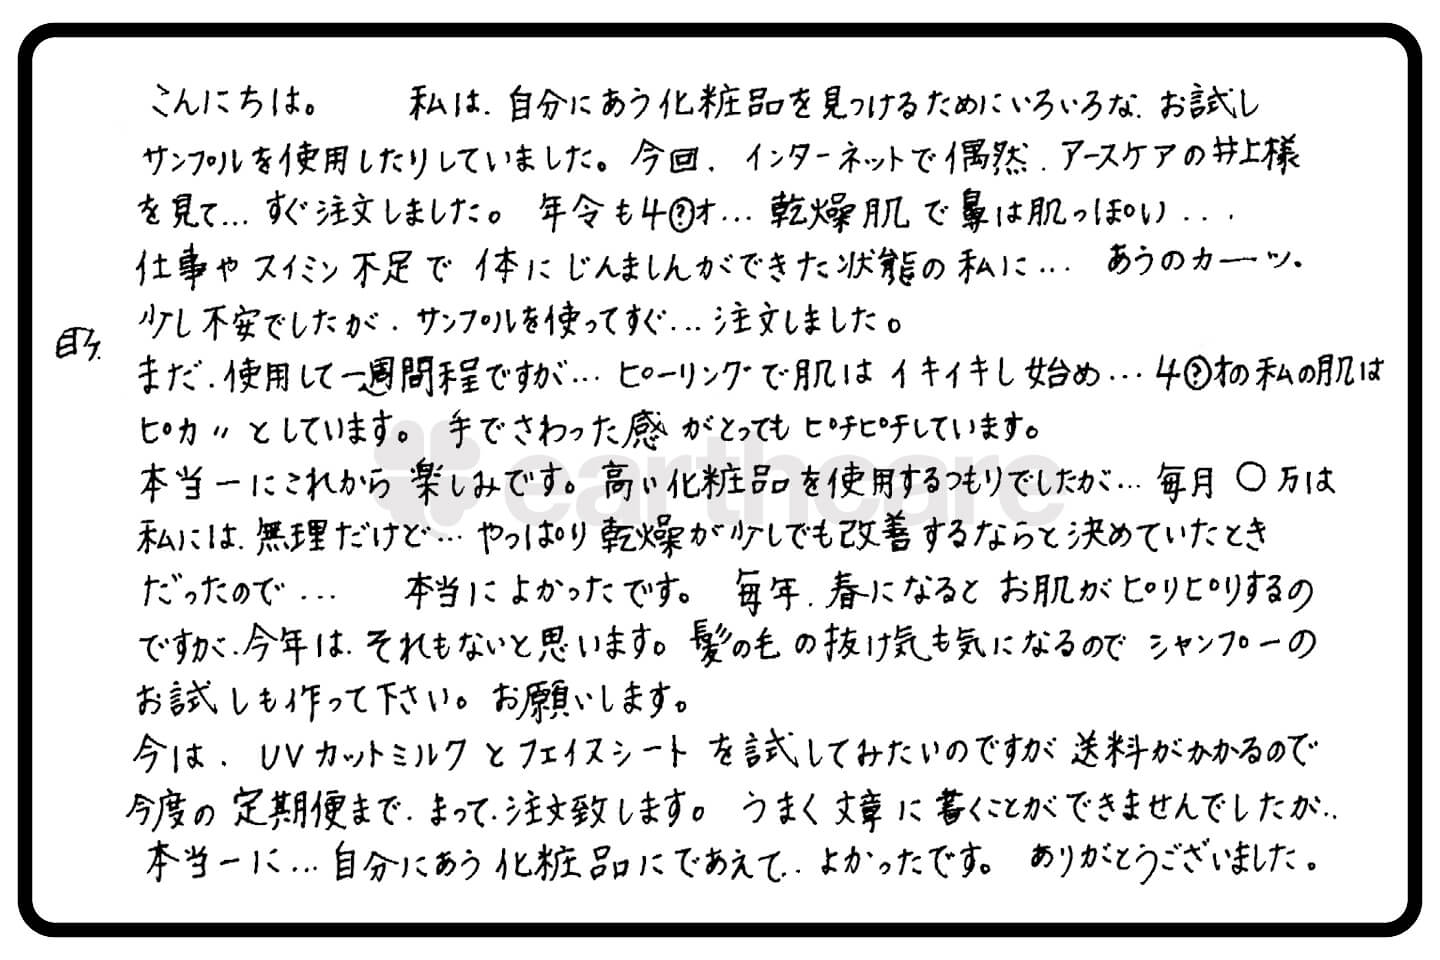 こんにちは。 私は、自分にあう化粧品を見つけるためにいろいろな、お試し
サンプルを使用したりしていました。今回、インターネットで偶然、アースケアの井上様
を見て…すぐ注文しました。年令も4?才…乾燥肌で鼻は肌っぽい...
仕事やスイミン不足で体にじんましんができた状態の私に… あうのカーッ、
少し不安でしたが、サンプルを使ってすぐ…注文しました。
まだ、使用して一週間程ですが…ピーリングで肌はイキイキし始め…4?才の私の肌は
ピカ〃としています。手でさわった感がとってもピチピチしています。
earthcare
本当ーにこれから楽しみです。高い化粧品を使用するつもりでしたが…毎月〇万は
私には、無理だけど…やっぱり乾燥が少しでも改善するならと決めていたとき
だったので… 本当によかったです。毎年、春になるとお肌がピリピリするの
ですが、今年は、それもないと思います。髪の毛の抜け気も気になるのでシャンプーの
お試しも作って下さい。お願いします。
今は、UVカットミルクとフェイスシートを試してみたいのですが送料がかかるので
今度の定期便まで、まって、注文致します。うまく文章に書くことができませんでしたが..
本当ーに…自分にあう化粧品にであえて、よかったです。ありがとうございました。